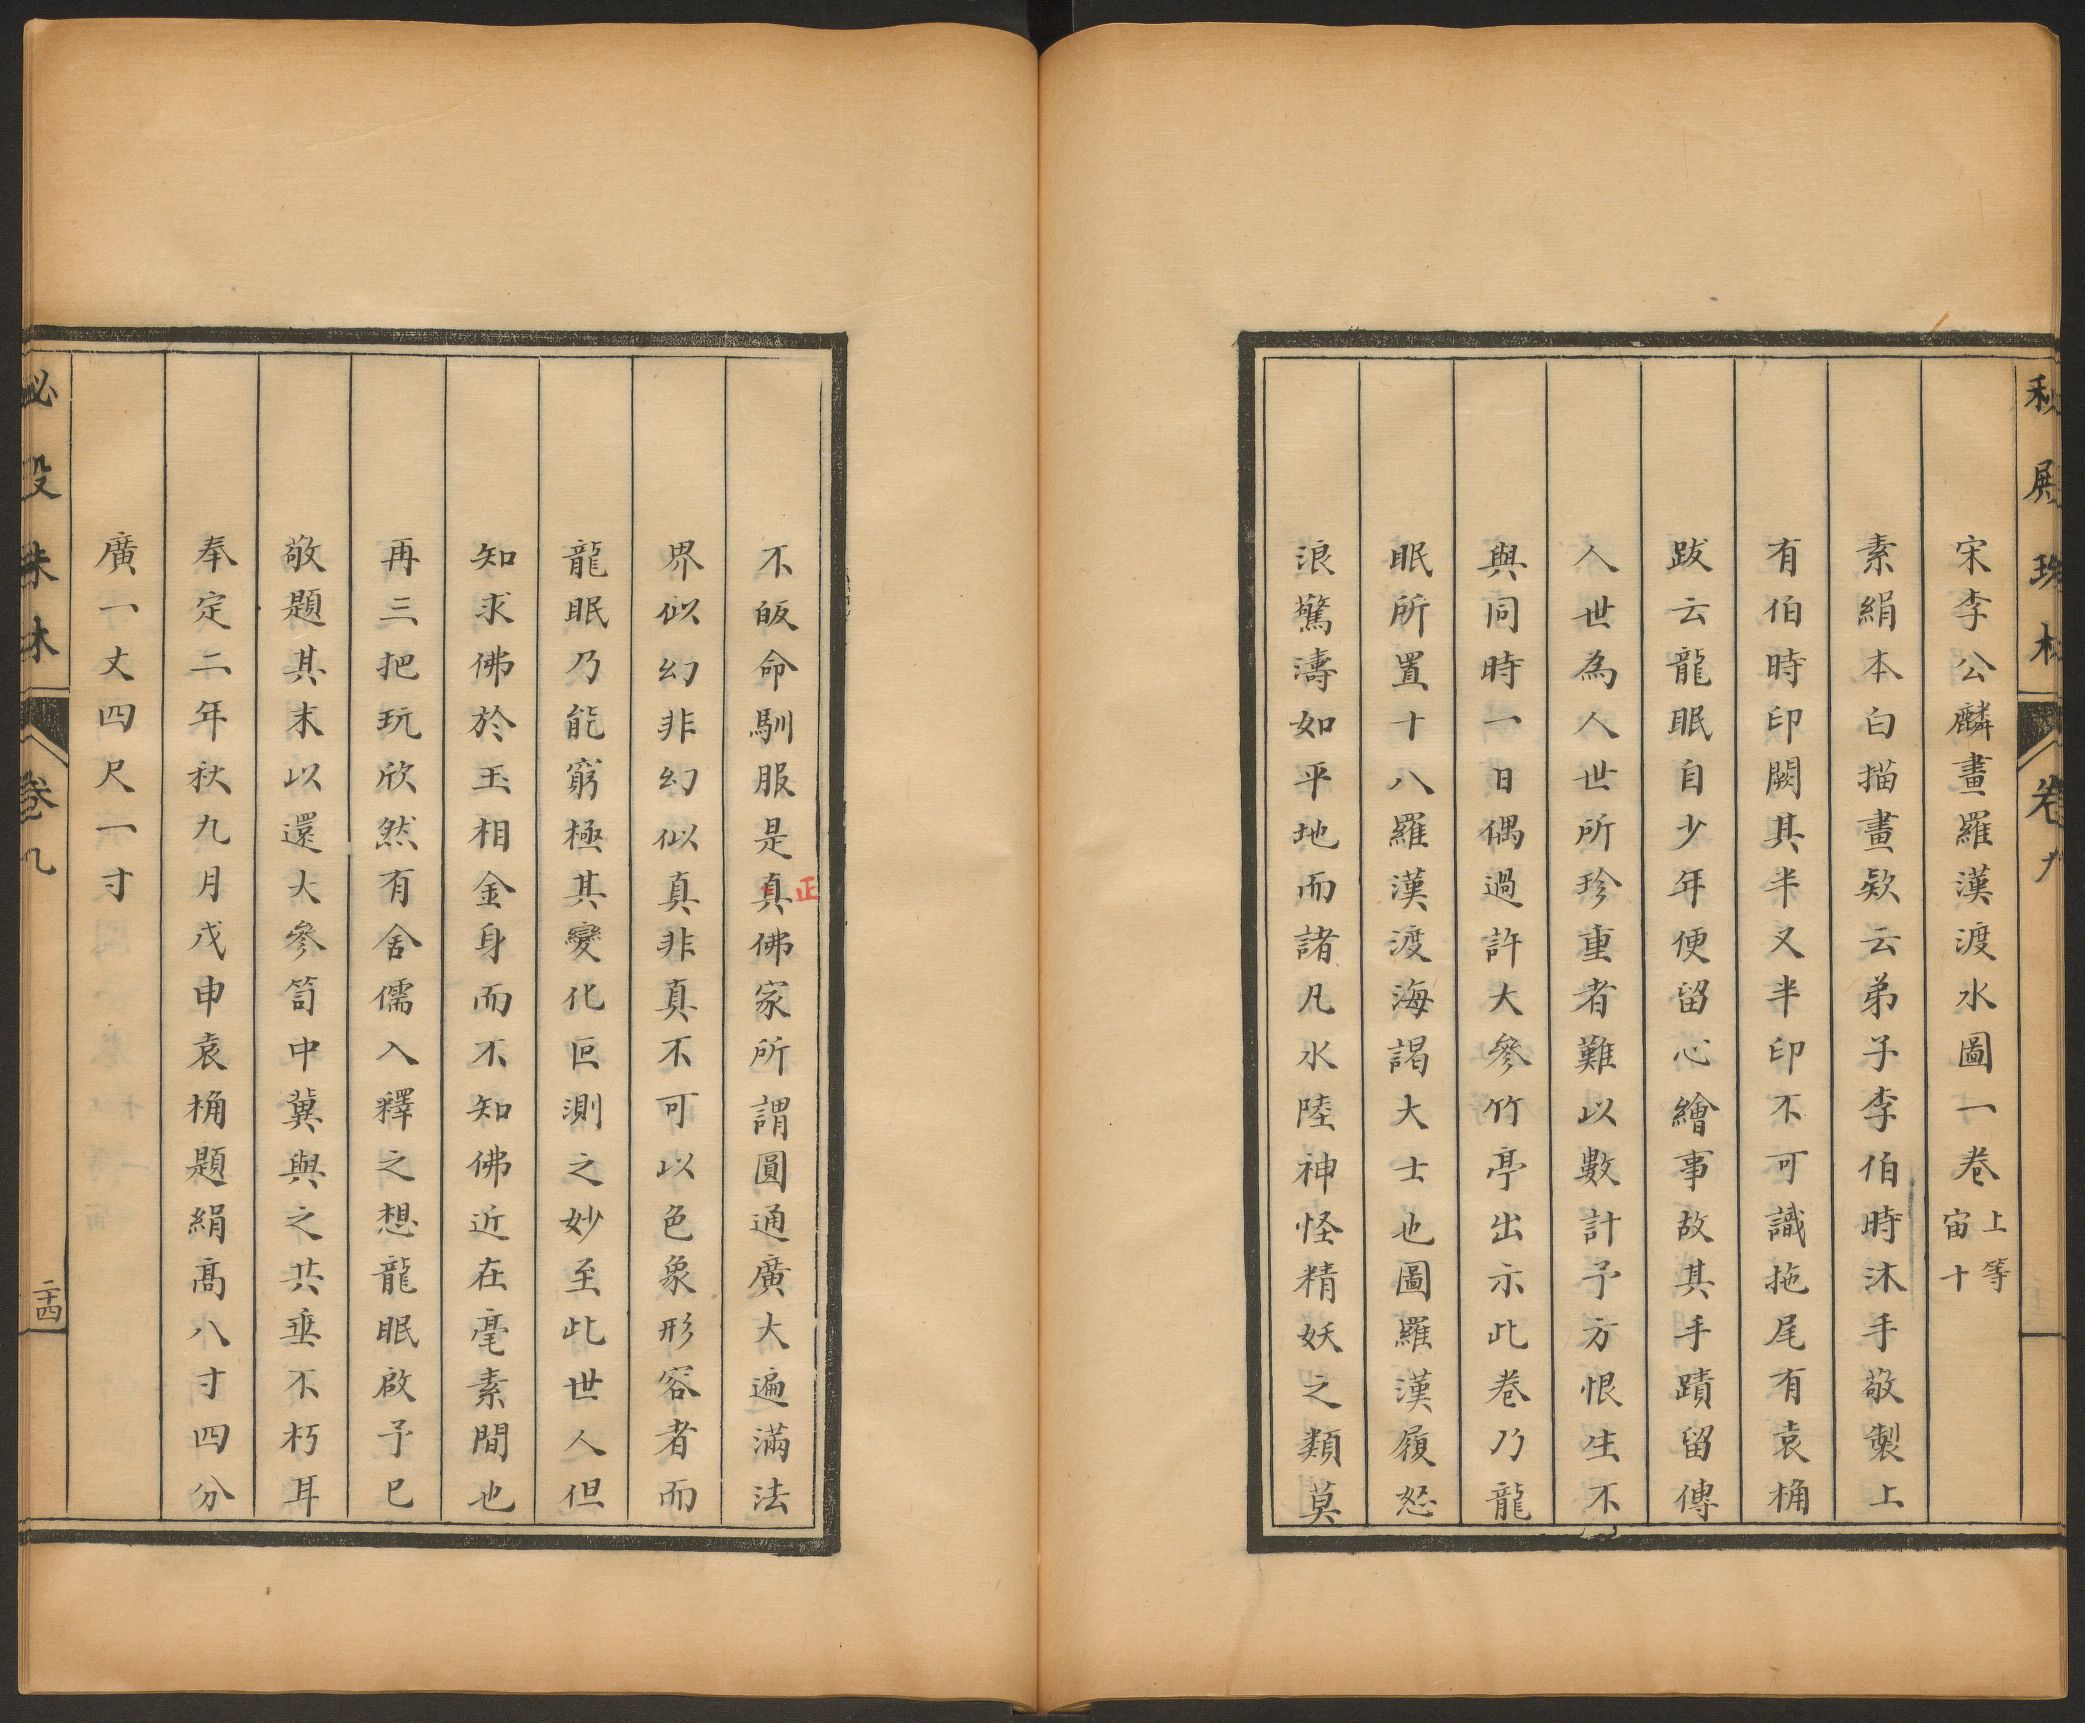 秘殿珠林 卷九
宋李公麟畫羅漢渡水圖一卷 上等 宙十
素絹本白描畫欵云弟子李伯時沐手敬製上
有伯時印闕其半又半印不可識拖尾有袁桷
跋云龍眠自少年便留心繪事故其手蹟留傳
人世為人世所珍重者難以數計予方恨生不
與同時一日偶過許大參竹亭出示此卷乃龍
眠所置十八羅漢渡海謁大士也圖羅漢履怒
浪驚濤如平地而諸凡水陸神怪精妖之類莫
不皈命馴服是真佛家所謂圓通廣大遍滿法
正
界似幻非幻似真非真不可以色象形容者而
龍眠乃能窮極其變化叵測之妙至此世人但
知求佛於玉相金身而不知佛近在毫素間也
再三把玩欣然有舍儒入釋之想龍眠啟予已
敬題其末以還大參笥中冀與之共垂不朽耳
奉定二年秋九月戊申袁桷題絹高八寸四分
廣一丈四尺一寸
秘殿珠林 卷九 二十四